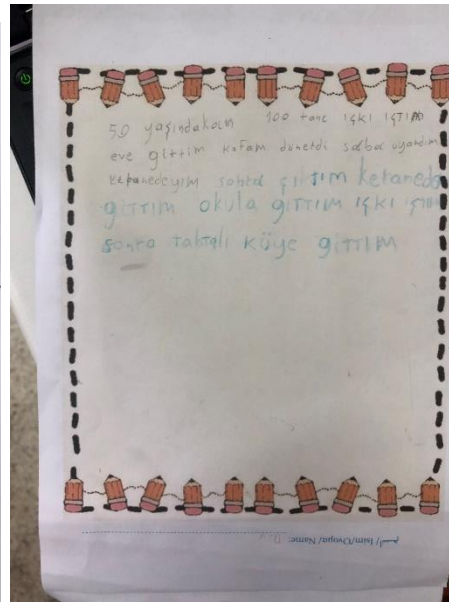 50 yaşındakaın 100 tane IÇKI IÇTIM
eve gittim kafam dönerdi sabba uyandım
kepanedeyim sonra ÇıKTIM kepanede
GITTIM okula GITTIM IÇKI IÇTIM
sonra TahTalı Küye GITTIM
اسم / Isim/Ονομα/ Name: